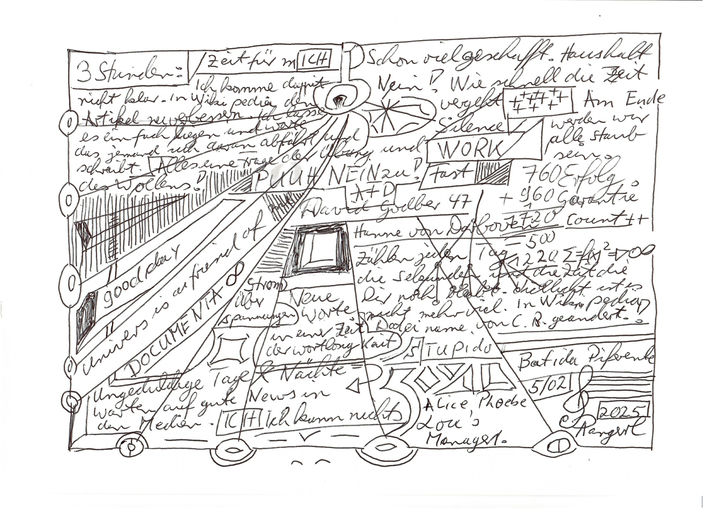 3 Stunden:
Zeit für mICH
Ich komme damit
nicht klar. in Wikipedia den
Artikel neu verbessern. Ich lasse
es einfach liegen und warte
das jemand sich daran abfährt und
schreibt. Alles eine Frage der Übung und
des Wollens!
Schon viel geschafft. Haushalt
Nein! Wie schnell die Zeit
vergeht ++++ Am Ende
Silence werden wir
WORK alle Staub
fast sein.
PUUH NEIN zu!
A+D
760 Erfolg
+ 960 Garantie
1720 Count ++
- 500
1220
David Goelber 47
Hanne von Darboven
Zählen jeden Tag
die Sekunden und die Zeit die
Dir noch bleibt. endlich ist
nicht mehr viel. in Wikipedia
Dateiname von C. R. geändert.
good day
Univers is a friend of
DOCUMENTA ∞
Strom
über
spannungen
Neue
Worte
in einer Zeit
der wortlosigkeit
STUPIDO
Ungeduldige Tage & Nächte
warten auf gute News in
den Medien. ICH Ich kann nichts
Alice, Phoebe
Lou's
Manager.
Batida
5/02
2025
C. Rangeol